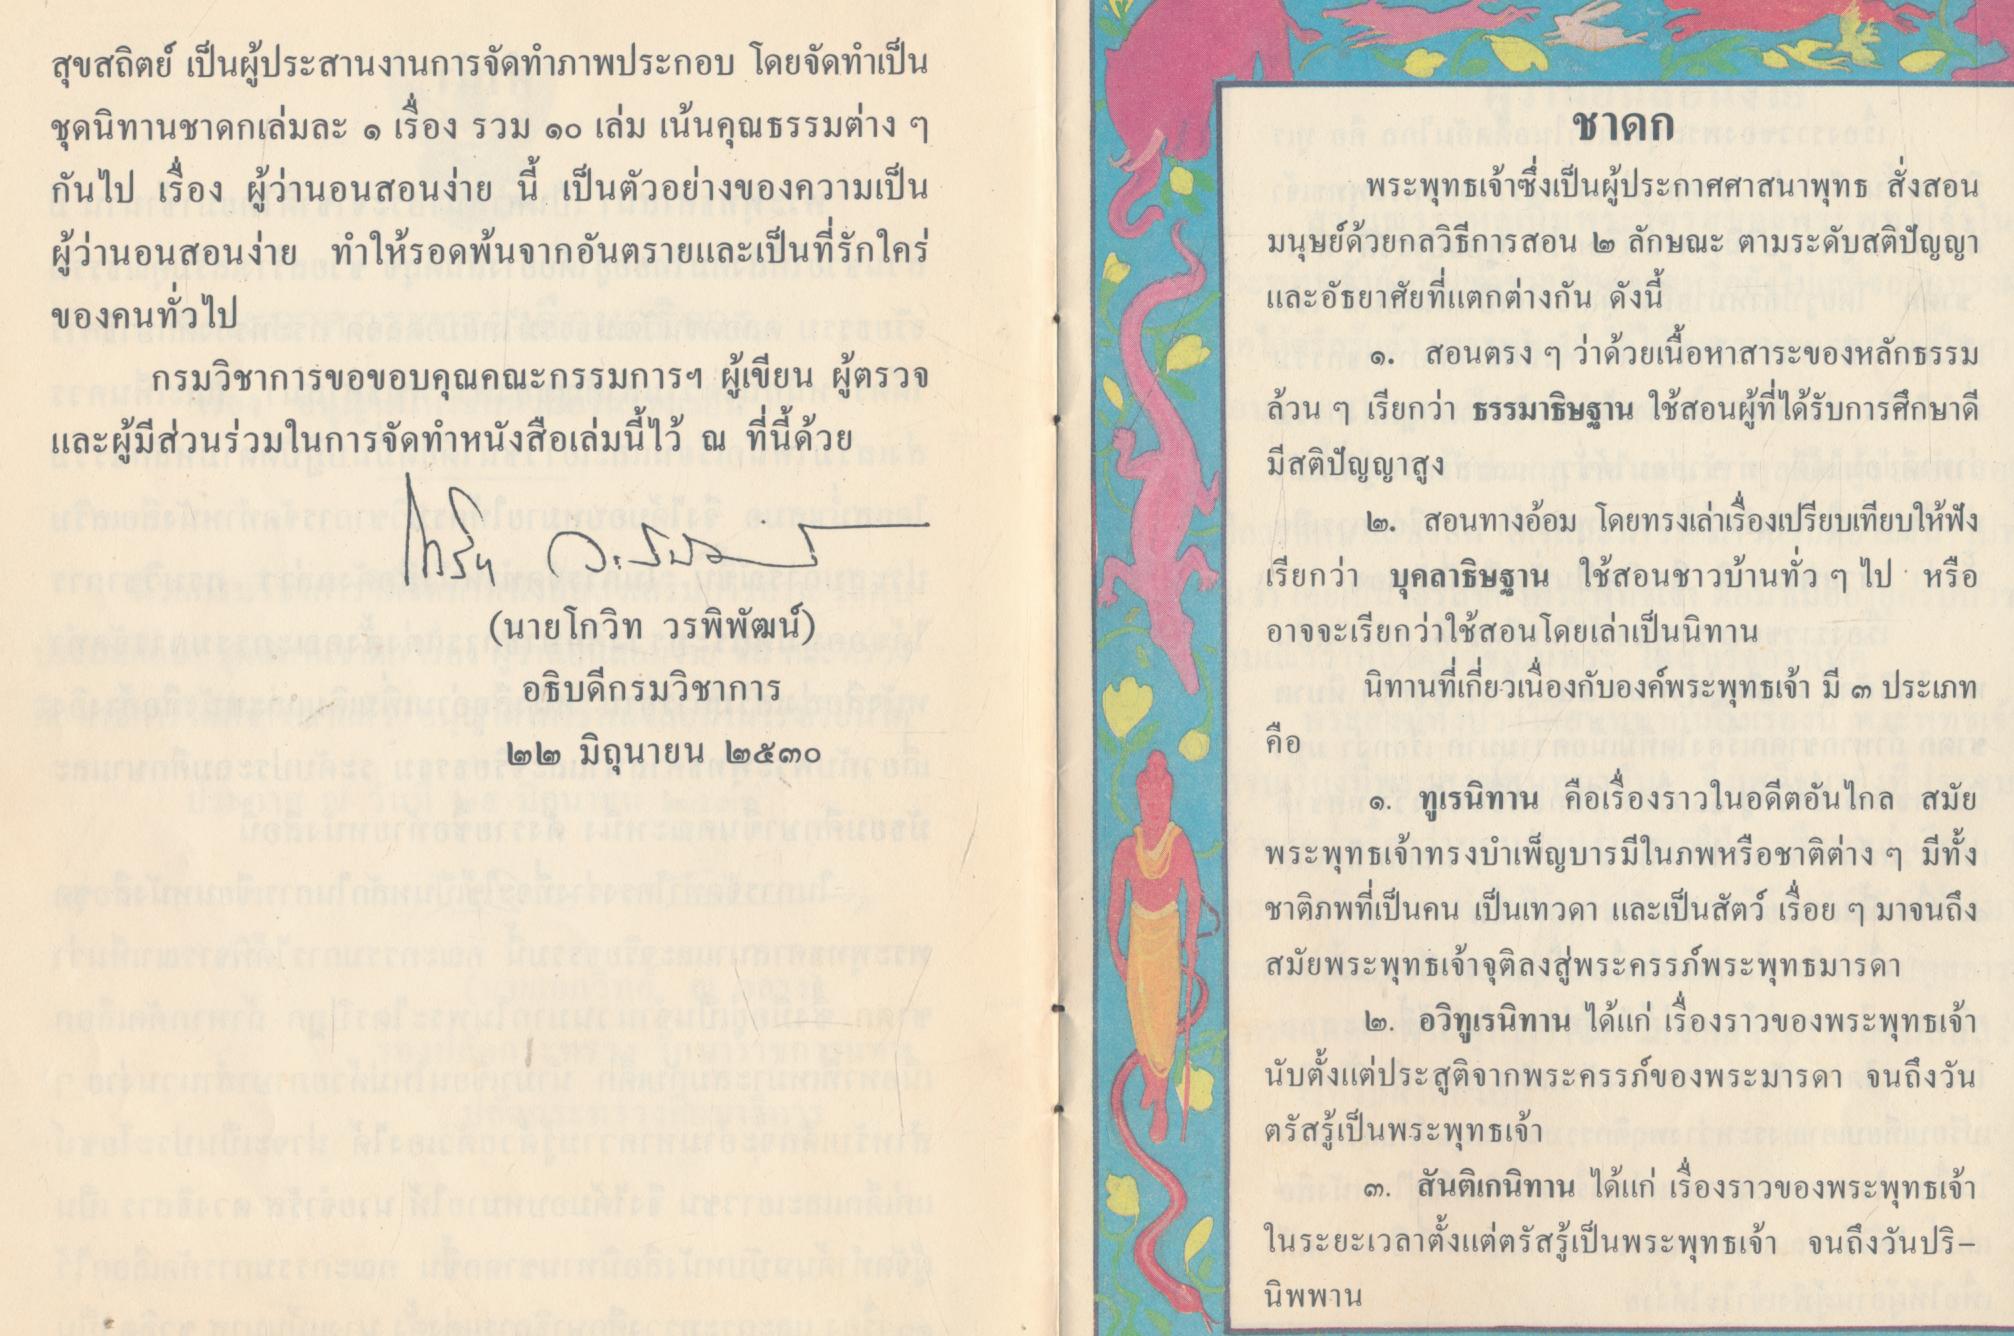 สุขสถิตย์ เป็นผู้ประสานงานการจัดทำภาพประกอบ โดยจัดทำเป็น
ชุดนิทานชาดกเล่มละ ๑ เรื่อง รวม ๑๐ เล่ม เน้นคุณธรรมต่าง ๆ
กันไป เรื่อง ผู้ว่านอนสอนง่าย นี้ เป็นตัวอย่างของความเป็น
ผู้ว่านอนสอนง่าย ทำให้รอดพ้นจากอันตรายและเป็นที่รักใคร่
ของคนทั่วไป
กรมวิชาการขอขอบคุณคณะกรรมการฯ ผู้เขียน ผู้ตรวจ
และผู้มีส่วนร่วมในการจัดทำหนังสือเล่มนี้ไว้ ณ ที่นี้ด้วย
(นายโกวิท วรพิพัฒน์)
อธิบดีกรมวิชาการ
๒๒ มิถุนายน ๒๕๓๐
ชาดก
พระพุทธเจ้าซึ่งเป็นผู้ประกาศศาสนาพุทธ สั่งสอน
มนุษย์ด้วยกลวิธีการสอน ๒ ลักษณะ ตามระดับสติปัญญา
และอัธยาศัยที่แตกต่างกัน ดังนี้
๑. สอนตรง ๆ ว่าด้วยเนื้อหาสาระของหลักธรรม
ล้วน ๆ เรียกว่า ธรรมาธิษฐาน ใช้สอนผู้ที่ได้รับการศึกษาดี
มีสติปัญญาสูง
๒. สอนทางอ้อม โดยทรงเล่าเรื่องเปรียบเทียบให้ฟัง
เรียกว่า บุคลาธิษฐาน ใช้สอนชาวบ้านทั่ว ๆ ไป หรือ
อาจจะเรียกว่าใช้สอนโดยเล่าเป็นนิทาน
นิทานที่เกี่ยวเนื่องกับองค์พระพุทธเจ้า มี ๓ ประเภท
คือ
๑. ทูเรนิทาน คือเรื่องราวในอดีตอันไกล สมัย
พระพุทธเจ้าทรงบำเพ็ญบารมีในภพหรือชาติต่าง ๆ มีทั้ง
ชาติภพที่เป็นคน เป็นเทวดา และเป็นสัตว์ เรื่อย ๆ มาจนถึง
สมัยพระพุทธเจ้าจุติลงสู่พระครรภ์พระพุทธมารดา
๒. อวิทูเรนิทาน ได้แก่ เรื่องราวของพระพุทธเจ้า
นับตั้งแต่ประสูติจากพระครรภ์ของพระมารดา จนถึงวัน
ตรัสรู้เป็นพระพุทธเจ้า
๓. สันติเกนิทาน ได้แก่ เรื่องราวของพระพุทธเจ้า
ในระยะเวลาตั้งแต่ตรัสรู้เป็นพระพุทธเจ้า จนถึงวันปริ-
นิพพาน